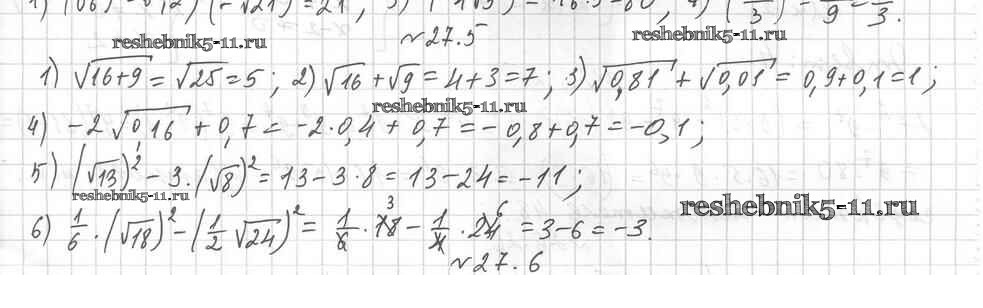 №27.5
reshebnik5-11.ru reshebnik5-11.ru
1) √(16+9) = √25 = 5; 2) √16 + √9 = 4+3 = 7; 3) √0,81 + √0,01 = 0,9+0,1 = 1;
reshebnik5-11.ru
4) -2√0,16 + 0,7 = -2·0,4 + 0,7 = -0,8+0,7 = -0,1;
5) (√13)² - 3·(√8)² = 13 - 3·8 = 13-24 = -11;
reshebnik5-11.ru reshebnik5-11.ru
6) 1/6·(√18)² - (1/2 √24)² = 1/6·18 3 - 1/4·24 6 = 3-6 = -3.
№27.6